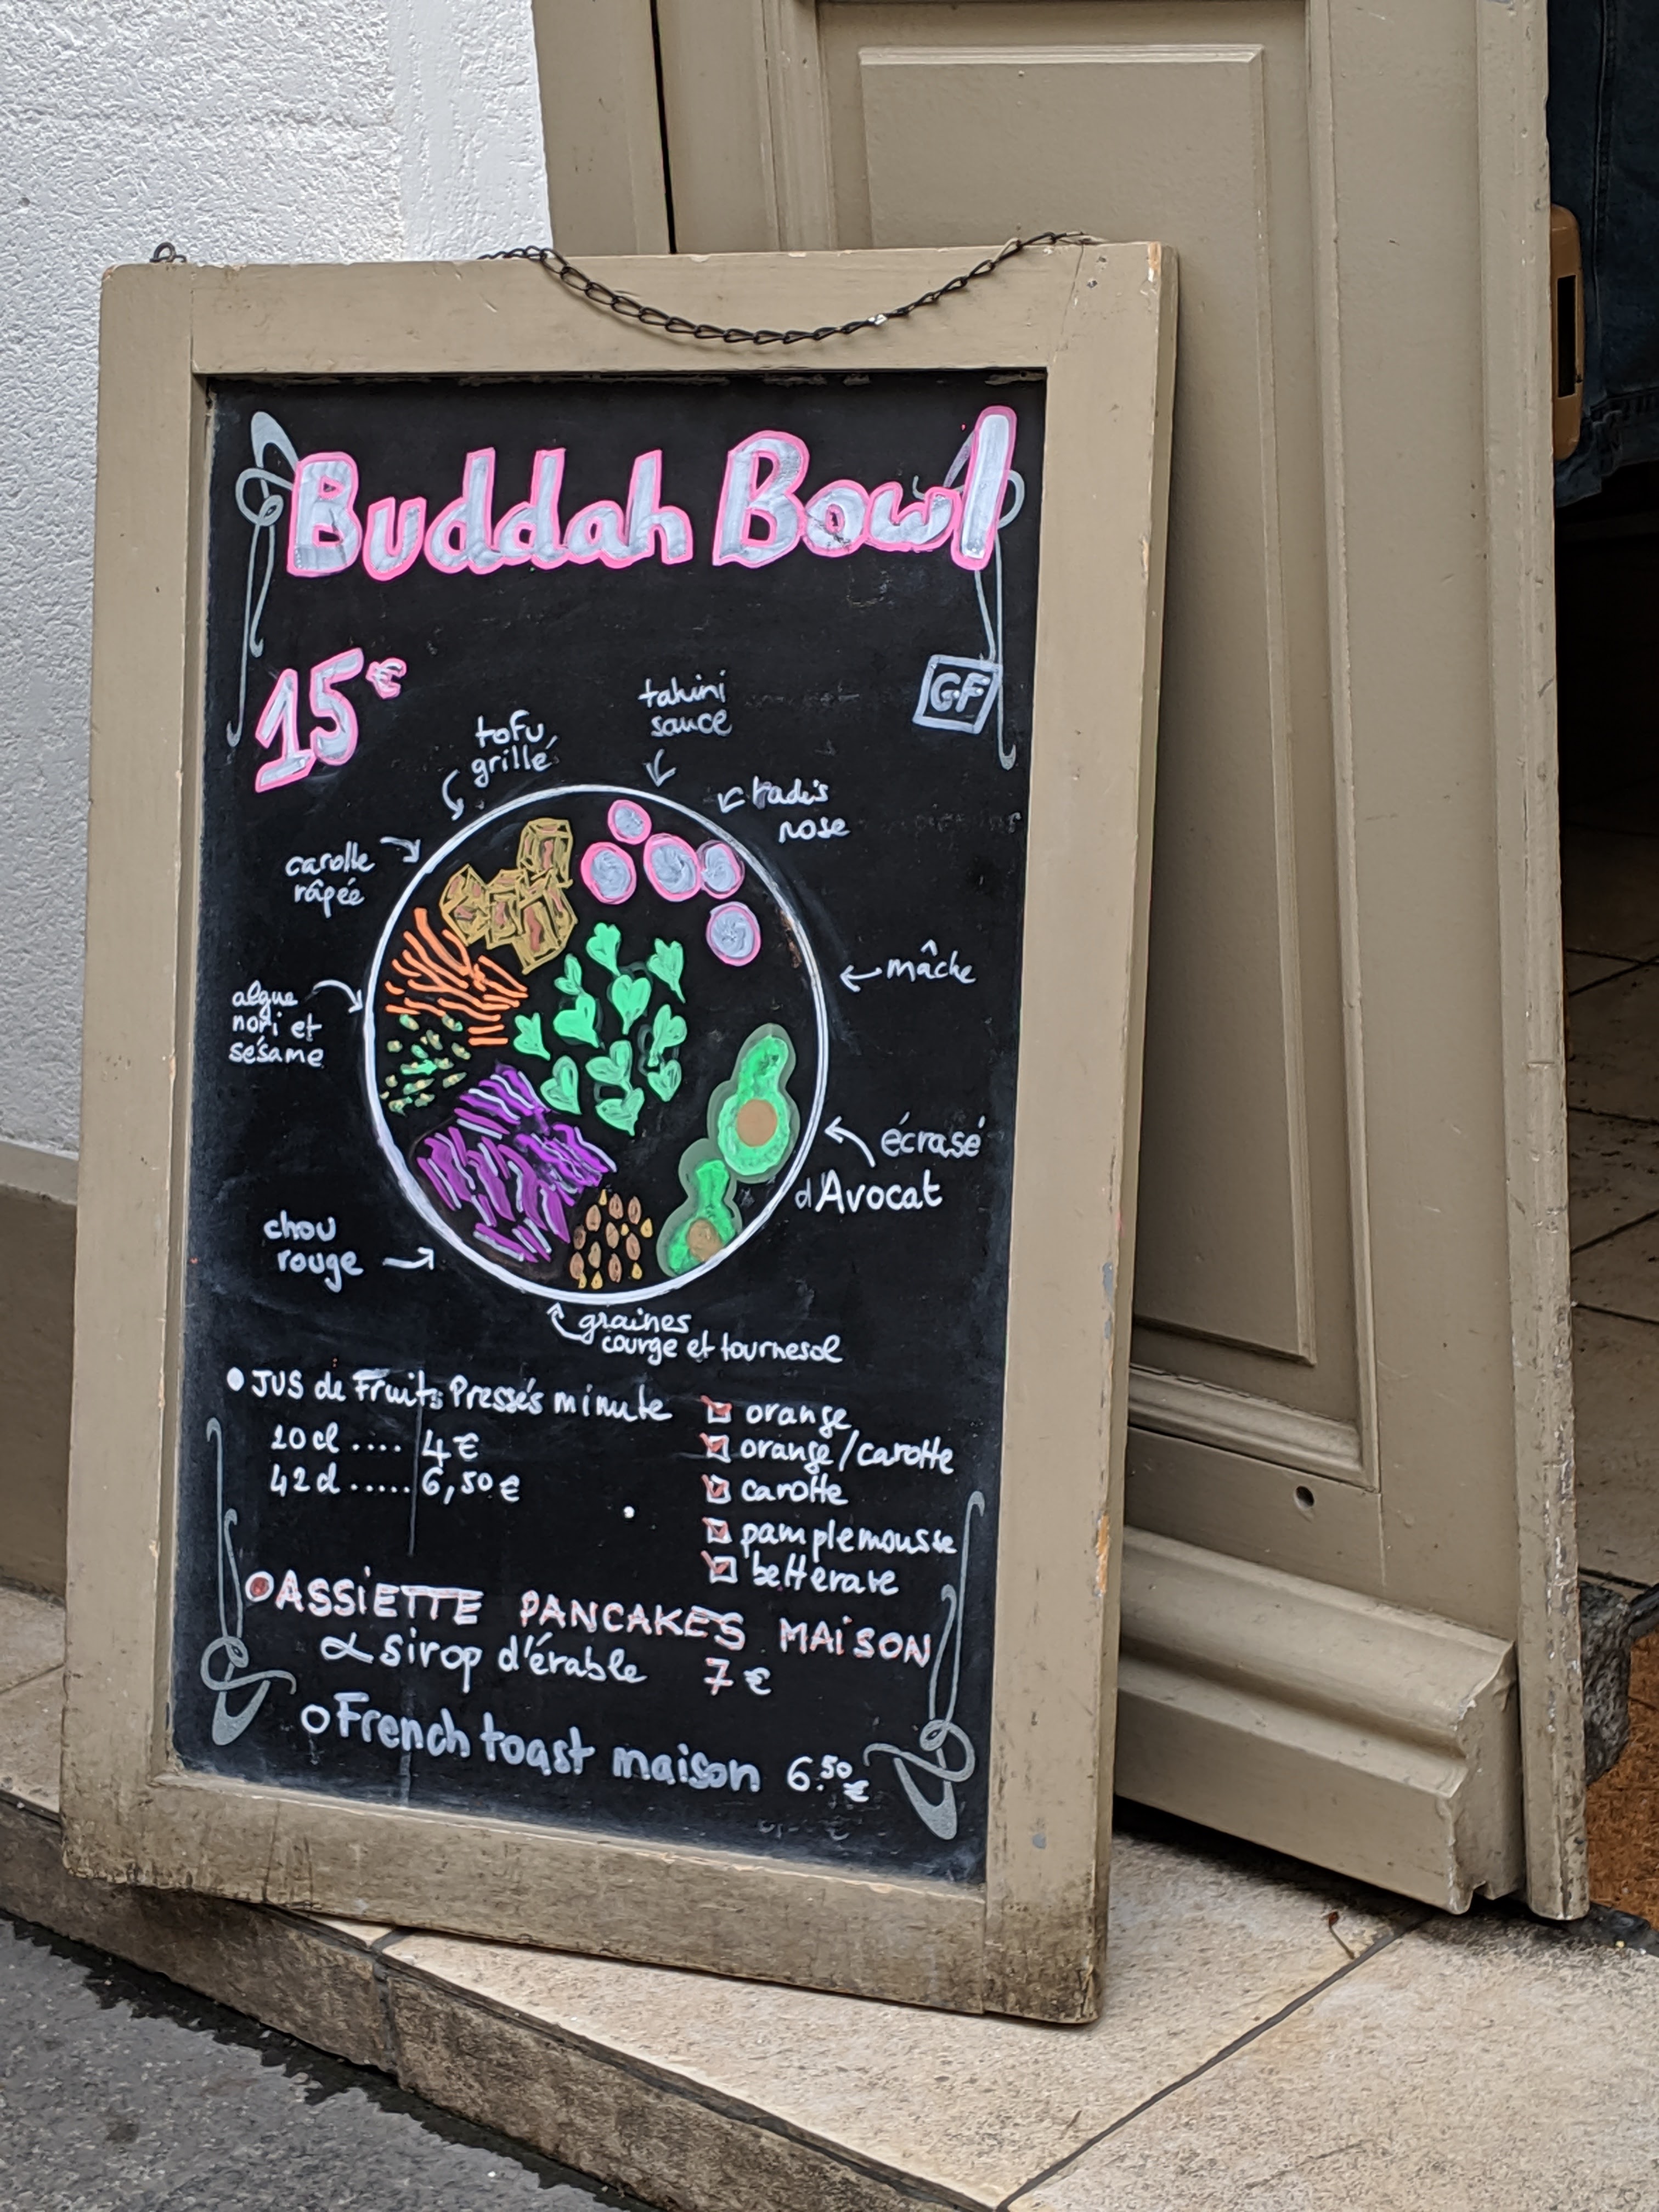 Buddah Bowl
15€
GF
tahini
sauce
tofu
grillé
radis
rose
carotte
râpée
mâche
algue
nori et
sésame
écrasé
d'Avocat
chou
rouge
graines
courge et tournesol
JUS de Fruits Pressés minute
20cl .... 4€
42cl ..... 6,50€
orange
orange/carotte
carotte
pamplemousse
betterave
ASSIETTE PANCAKES MAISON
& sirop d'érable 7€
French toast maison 6.50€